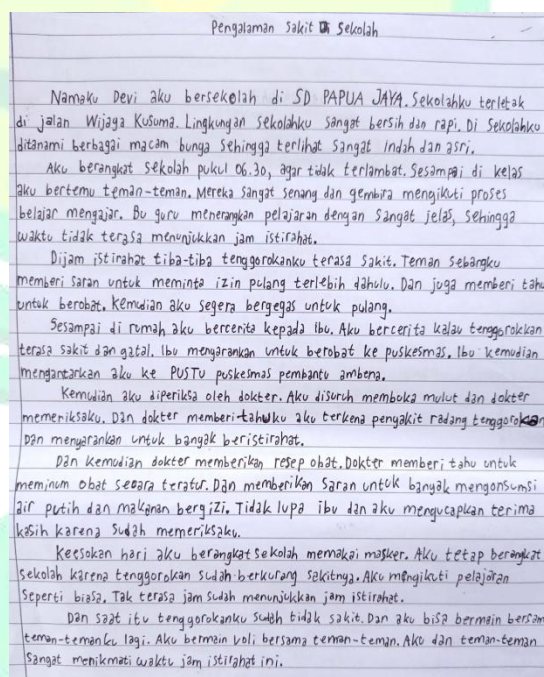 Pengalaman Sakit di Sekolah
Namaku Devi aku bersekolah di SD PAPUA JAYA. Sekolahku terletak
di jalan Wijaya Kusuma. Lingkungan sekolahku sangat bersih dan rapi. Di Sekolahku
ditanami berbagai macam bunga sehingga terlihat sangat indah dan asri.
Aku berangkat sekolah pukul 06.30, agar tidak terlambat. Sesampai di kelas
aku bertemu teman-teman. Mereka sangat senang dan gembira mengikuti proses
belajar mengajar. Bu guru menerangkan pelajaran dengan sangat jelas, sehingga
waktu tidak terasa menunjukkan jam istirahat.
Dijam istirahat tiba-tiba tenggorokanku terasa sakit. Teman sebangku
memberi saran untuk meminta izin pulang terlebih dahulu. Dan juga memberi tahu
untuk berobat. Kemudian aku segera bergegas untuk pulang.
Sesampai di rumah aku bercerita kepada ibu. Aku bercerita kalau tenggorokkan
terasa sakit dan gatal. Ibu menyarankan untuk berobat ke puskesmas. Ibu kemudian
mengantarkan aku ke PUSTU puskesmas pembantu ambena.
Kemudian aku diperiksa oleh dokter. Aku disuruh membuka mulut dan dokter
memeriksaku. Dan dokter memberi-tahuku aku terkena penyakit radang tenggorokan
Dan menyarankan untuk banyak beristirahat.
Dan kemudian dokter memberikan resep obat. Dokter memberi tahu untuk
meminum obat secara teratur. Dan memberikan saran untuk banyak mengonsumsi
air putih dan makanan bergizi. Tidak lupa ibu dan aku mengucapkan terima
kasih karena sudah memeriksaku.
Keesokan hari aku berangkat sekolah memakai masker. Aku tetap berangkat
sekolah karena tenggorokan sudah berkurang sakitnya. Aku mengikuti pelajaran
seperti biasa. Tak terasa jam sudah menunjukkan jam istirahat.
Dan saat itu tenggorokanku sudah tidak sakit. Dan aku bisa bermain bersam
teman-temanku lagi. Aku bermain voli bersama teman-teman. Aku dan teman-teman
sangat menikmati waktu jam istirahat ini.